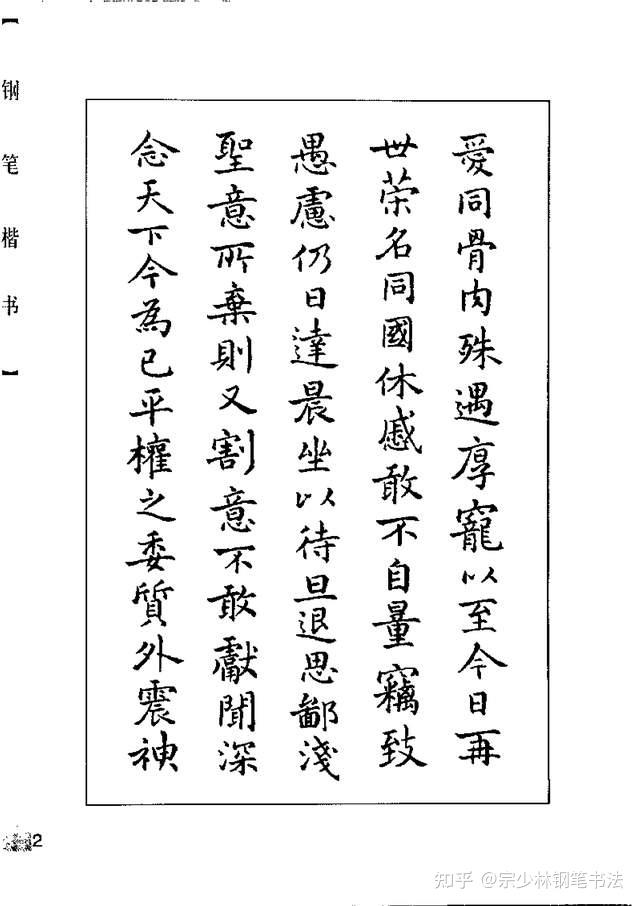 愛同骨肉殊遇厚寵以至今日再
世荣名同國休戚敢不自量竊致
愚慮仍日達晨坐以待旦退思鄙淺
聖意所棄則又割意不敢獻聞深
念天下今為已平權之委質外震神
【钢笔楷书】
2
知乎 @宗少林钢笔书法